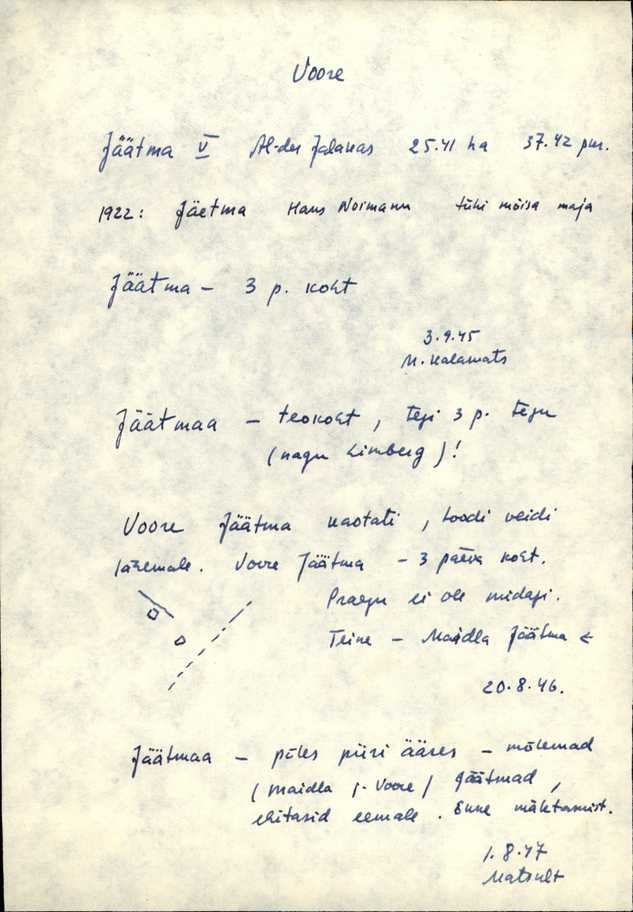 Voore
Jäätma V Al-der Jalakas 25.41 ha 37.42 pm.
1922: Jäetma Hans Noimann tühi mõisa maja
Jäätma – 3 p. koht
3.9.45
M. Kalamats
Jäätmaa – teokoht, tegi 3 p. tegu
(nagu Limberg)!
Voore Jäätma kaotati, toodi veidi
lähemale. Voore Jäätma – 3 päeva koht.
Praegu ei ole midagi.
Teine – Maidla Jäätma ←
20.8.46.
Jäätmaa – põles piiri ääres – mõlemad
(Maidla j. Voore) Jäätmad,
ehitasid eemale. Enne mäletamist.
1.8.47
Matsult